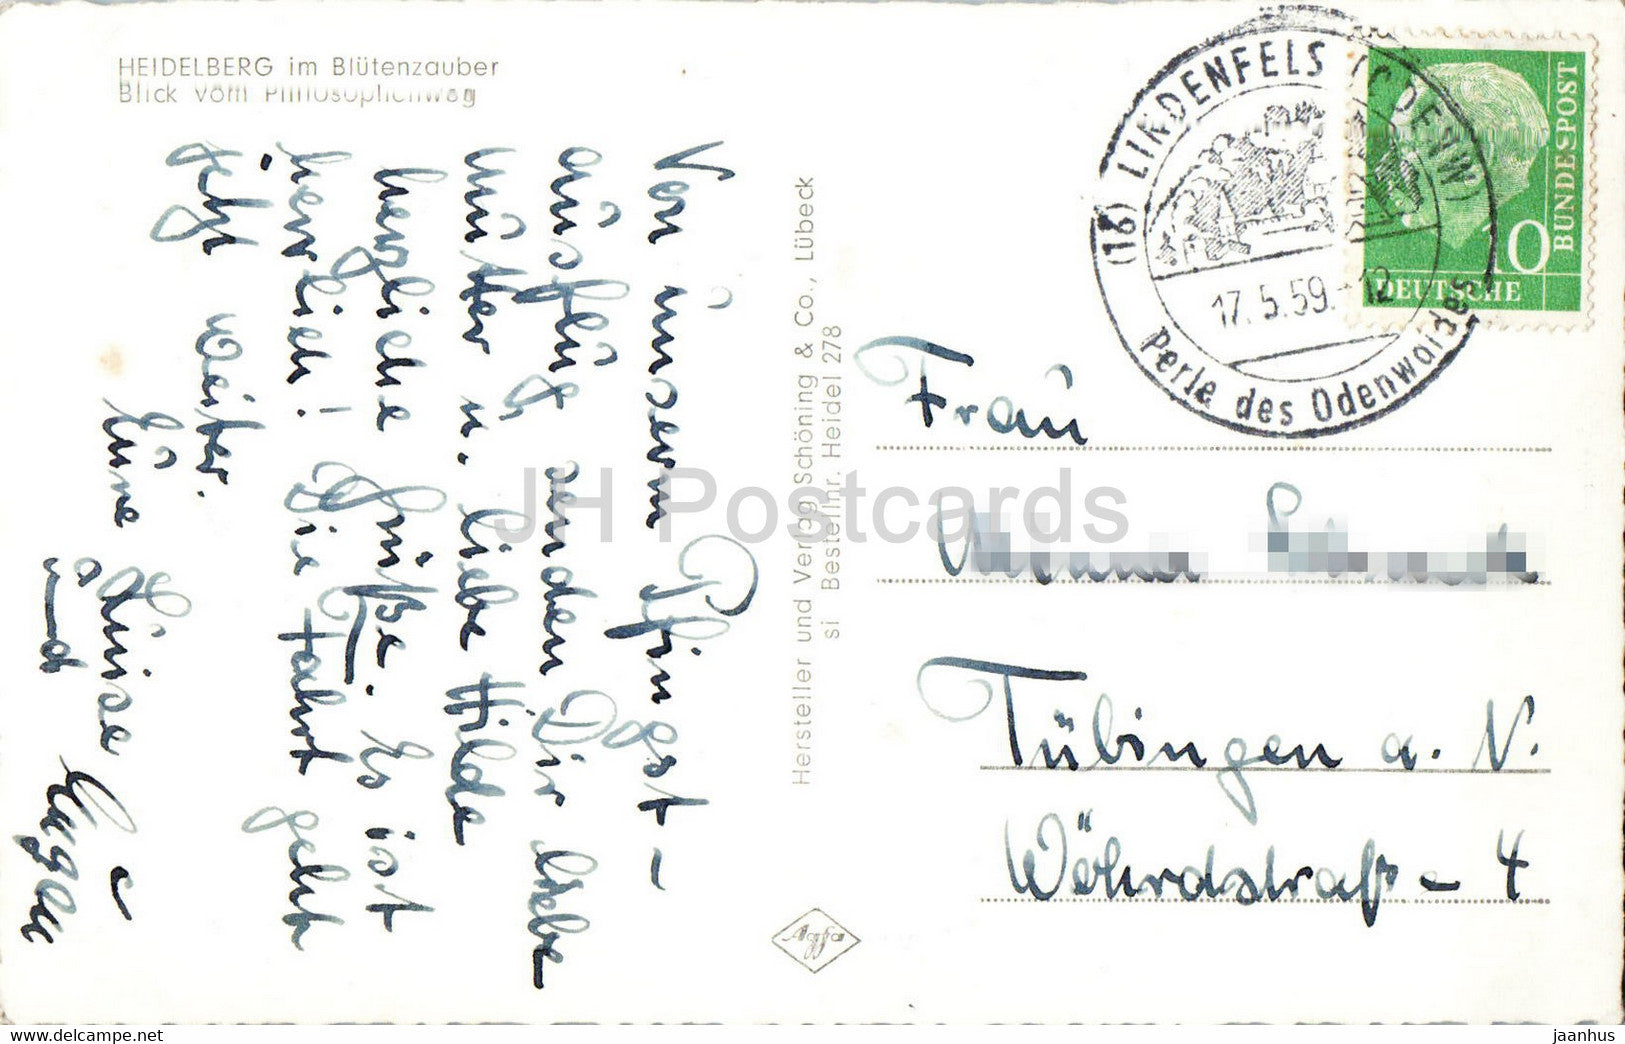 HEIDELBERG im Blütenzauber
Blick vom Philosophenweg
Von unserm Pfingst-
ausflug senden Dir liebe
Mutter u. liebe Hilde
herzliche Grüße. Es ist
herrlich! Die Fahrt geht
jetzt weiter.
Eure Luise
und
Hersteller und Verlag Schöning & Co., Lübeck
si Bestellnr. Heidel 278
Agfa
(16) LINDENFELS (ODENW)
17.5.59.-12
Perle des Odenwaldes
10
DEUTSCHE
BUNDESPOST
Frau
Tübingen a. N.
Wöhrdstraße 4
JH Postcards
https://www.delcampe.net
jaanhus